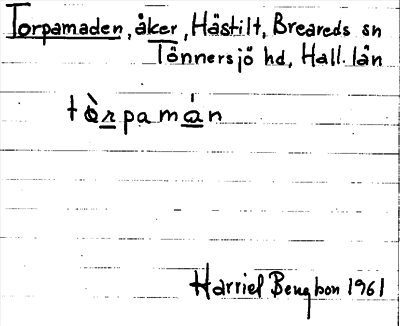 Torpamaden, åker, Håstilt, Breareds sn
Tönnersjö hd, Hall. län
tòrpamán
Harriel Bengtson 1961